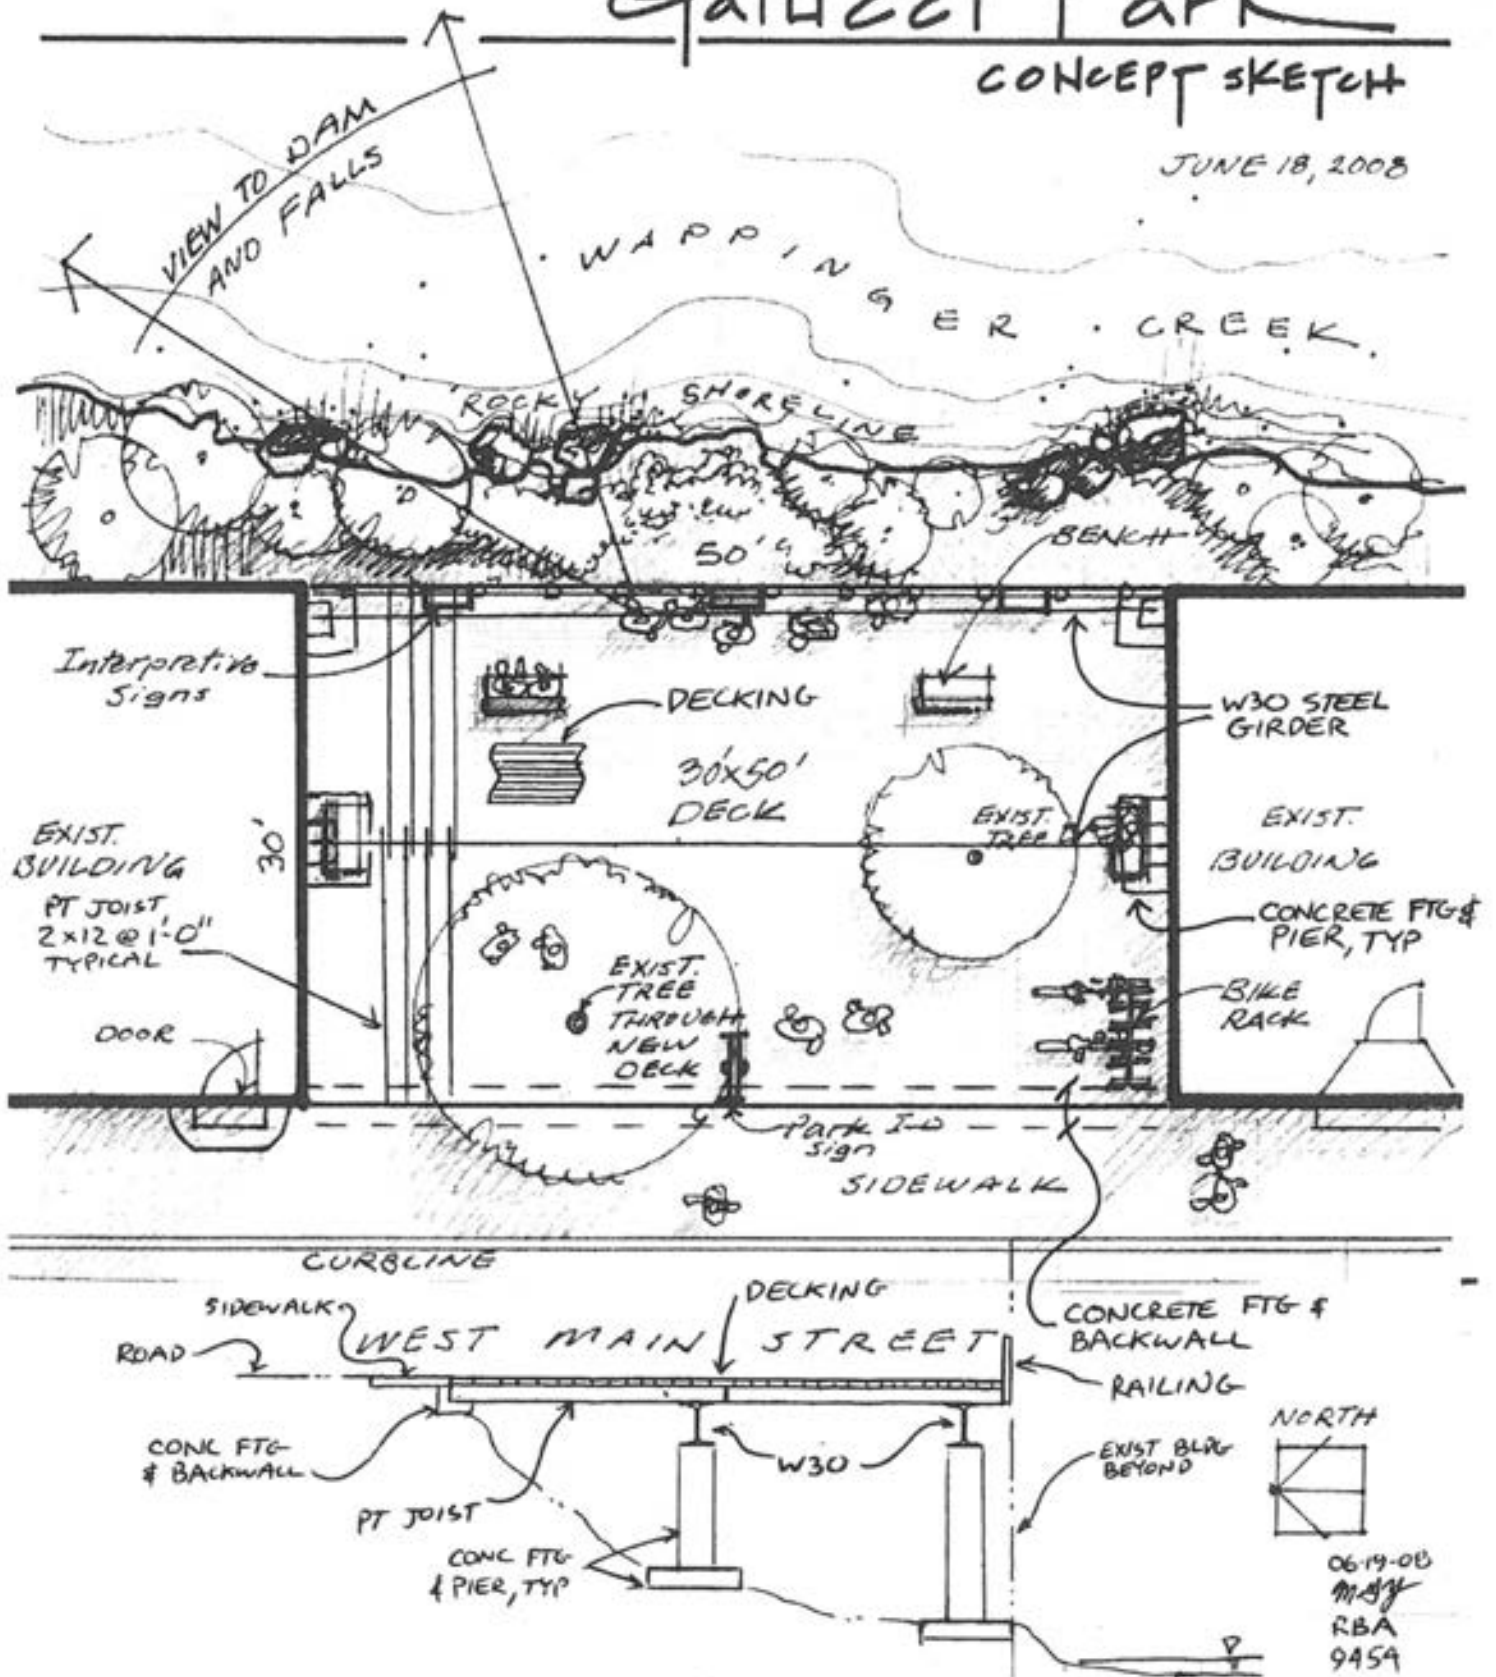 Galucci Park
CONCEPT SKETCH
JUNE 18, 2008
VIEW TO DAM
AND FALLS
WAPPINGER CREEK
ROCKY SHORELINE
50'
BENCH
Interpretive
Signs
DECKING
W30 STEEL
GIRDER
30'x50'
DECK
EXIST.
TREE
EXIST.
BUILDING
30'
EXIST.
BUILDING
PT JOIST
2x12 @ 1'-0"
TYPICAL
CONCRETE FTG &
PIER, TYP
EXIST.
TREE
THROUGH
NEW
DECK
BIKE
RACK
DOOR
Park I-D
Sign
SIDEWALK
CURBLINE
SIDEWALK
DECKING
CONCRETE FTG &
BACKWALL
WEST MAIN STREET
ROAD
RAILING
NORTH
CONC FTG
& BACKWALL
W30
EXIST BLDG
BEYOND
PT JOIST
CONC FTG
& PIER, TYP
06-19-08
RBA
9454